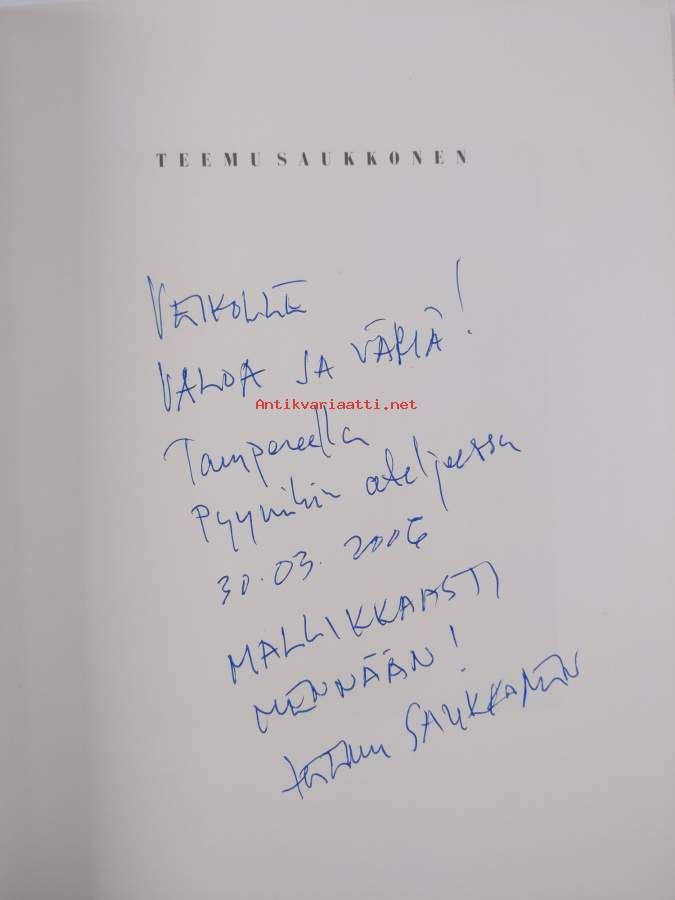 TEEMU SAUKKONEN
VEIKOLLE
VALOA JA VÄRIÄ!
Antikvariaatti.net
Tampereella
Pyynikin ateljeessa
30.03.2006
MALLIKKAASTI
MENNÄÄN!
Teemu SAUKKONEN